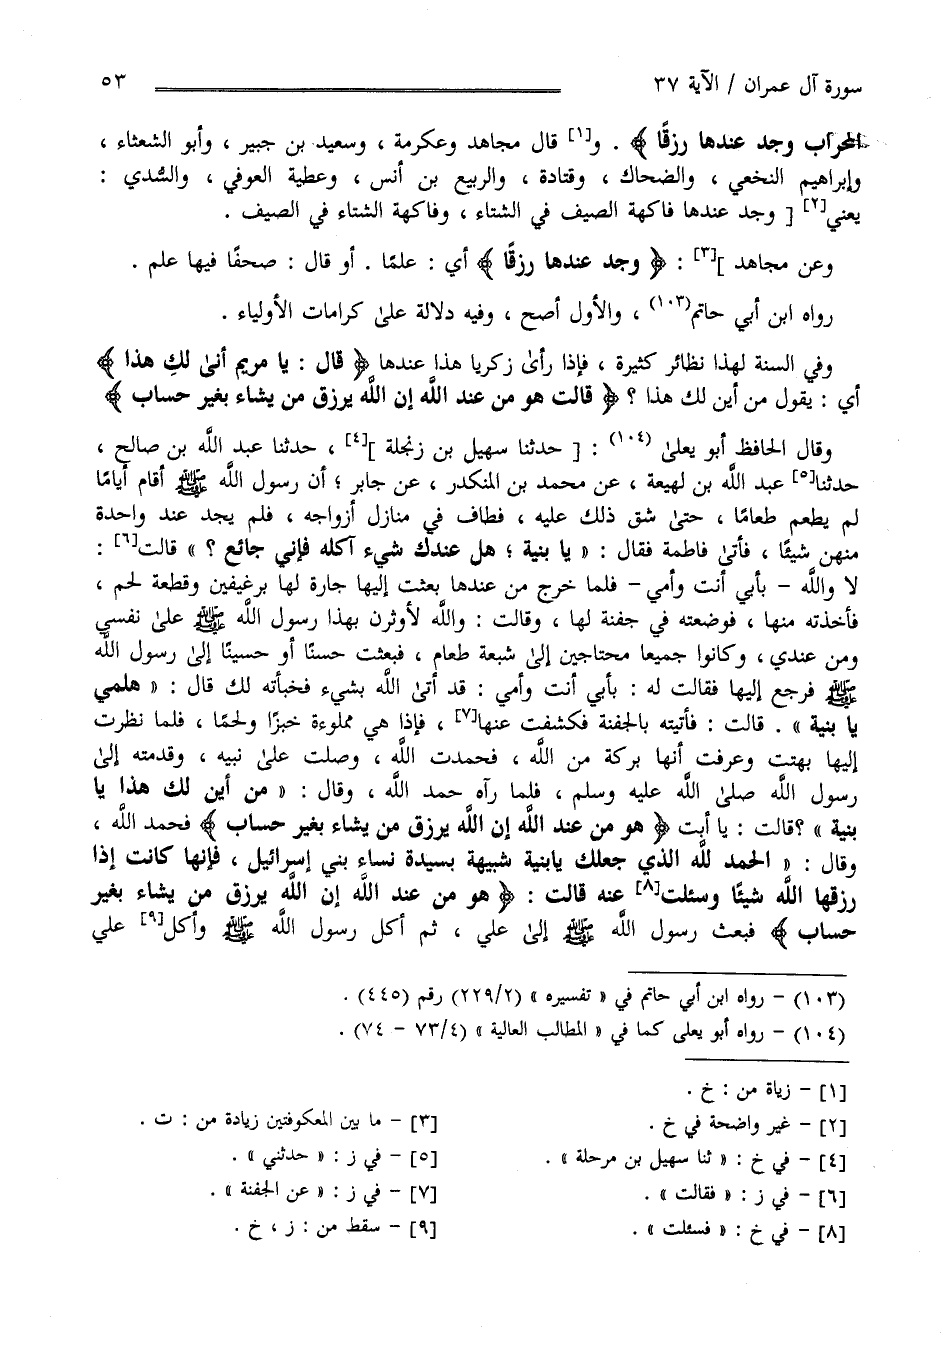 سورة آل عمران / الآية ٣٧ ٥٣
المحراب وجد عندها رزقًا ﴾ . و[١] قال مجاهد وعكرمة ، وسعيد بن جبير ، وأبو الشعثاء ،
وإبراهيم النخعي ، والضحاك ، وقتادة ، والربيع بن أنس ، وعطية العوفي ، والسُّدي :
يعني[٢] [ وجد عندها فاكهة الصيف في الشتاء ، وفاكهة الشتاء في الصيف .
وعن مجاهد ][٣] : ﴿ وجد عندها رزقًا ﴾ أي : علمًا . أو قال : صحفًا فيها علم .
رواه ابن أبي حاتم(١٠٣) ، والأول أصح ، وفيه دلالة علىٰ كرامات الأولياء .
وفي السنة لهذا نظائر كثيرة ، فإذا رأىٰ زكريا هذا عندها ﴿ قال : يا مريم أنىٰ لكِ هذا ﴾
أي : يقول من أين لك هذا ؟ ﴿ قالت هو من عند اللَّه إن اللَّه يرزق من يشاء بغير حساب ﴾
وقال الحافظ أبو يعلىٰ (١٠٤) : [ حدثنا سهيل بن زنجلة ][٤] ، حدثنا عبد اللَّه بن صالح ،
حدثنا[٥] عبد اللَّه بن لهيعة ، عن محمد بن المنكدر ، عن جابر ؛ أن رسول اللَّه ﷺ أقام أيامًا
لم يطعم طعامًا ، حتىٰ شق ذلك عليه ، فطاف في منازل أزواجه ، فلم يجد عند واحدة
منهن شيئًا ، فأتىٰ فاطمة فقال : « يا بنية ؛ هل عندك شيء آكله فإني جائع ؟ » قالت[٦] :
لا واللَّه - بأبي أنت وأمي - فلما خرج من عندها بعثت إليها جارة لها برغيفين وقطعة لحم ،
فأخذته منها ، فوضعته في جفنة لها ، وقالت : واللَّه لأوثرن بهذا رسول اللَّه ﷺ علىٰ نفسي
ومن عندي ، وكانوا جميعا محتاجين إلىٰ شبعة طعام ، فبعثت حسنًا أو حسينًا إلىٰ رسول اللَّه
ﷺ فرجع إليها فقالت له : بأبي أنت وأمي : قد أتىٰ اللَّه بشيء فخبأته لك قال : « هلمي
يا بنية » . قالت : فأتيته بالجفنة فكشفت عنها[٧] ، فإذا هي مملوءة خبزًا ولحمًا ، فلما نظرت
إليها بهتت وعرفت أنها بركة من اللَّه ، فحمدت اللَّه ، وصلت علىٰ نبيه ، وقدمته إلىٰ
رسول اللَّه صلىٰ اللَّه عليه وسلم ، فلما رآه حمد اللَّه ، وقال : « من أين لك هذا يا
بنية » ؟قالت : يا أبت ﴿ هو من عند اللَّه إن اللَّه يرزق من يشاء بغير حساب ﴾ فحمد اللَّه ،
وقال : « الحمد للَّه الذي جعلك يابنية شبيهة بسيدة نساء بني إسرائيل ، فإنها كانت إذا
رزقها اللَّه شيئًا وسئلت[٨] عنه قالت : ﴿ هو من عند اللَّه إن اللَّه يرزق من يشاء بغير
حساب ﴾ فبعث رسول اللَّه ﷺ إلىٰ علي ، ثم أكل رسول اللَّه ﷺ وأكل[٩] علي
(١٠٣) - رواه ابن أبي حاتم في « تفسيره » (٢٢٩/٢) رقم (٤٤٥) .
(١٠٤) - رواه أبو يعلى كما في « المطالب العالية » (٧٣/٤ - ٧٤) .
[١] - زياة من : خ .
[٢] - غير واضحة في خ . [٣] - ما بين المعكوفتين زيادة من : ت .
[٤] - في خ : « ثنا سهيل بن مرحلة » . [٥] - في ز : « حدثني » .
[٦] - في ز : « فقالت » . [٧] - في ز : « عن الجفنة » .
[٨] - في خ : « فسئلت » . [٩] - سقط من : ز ، خ .